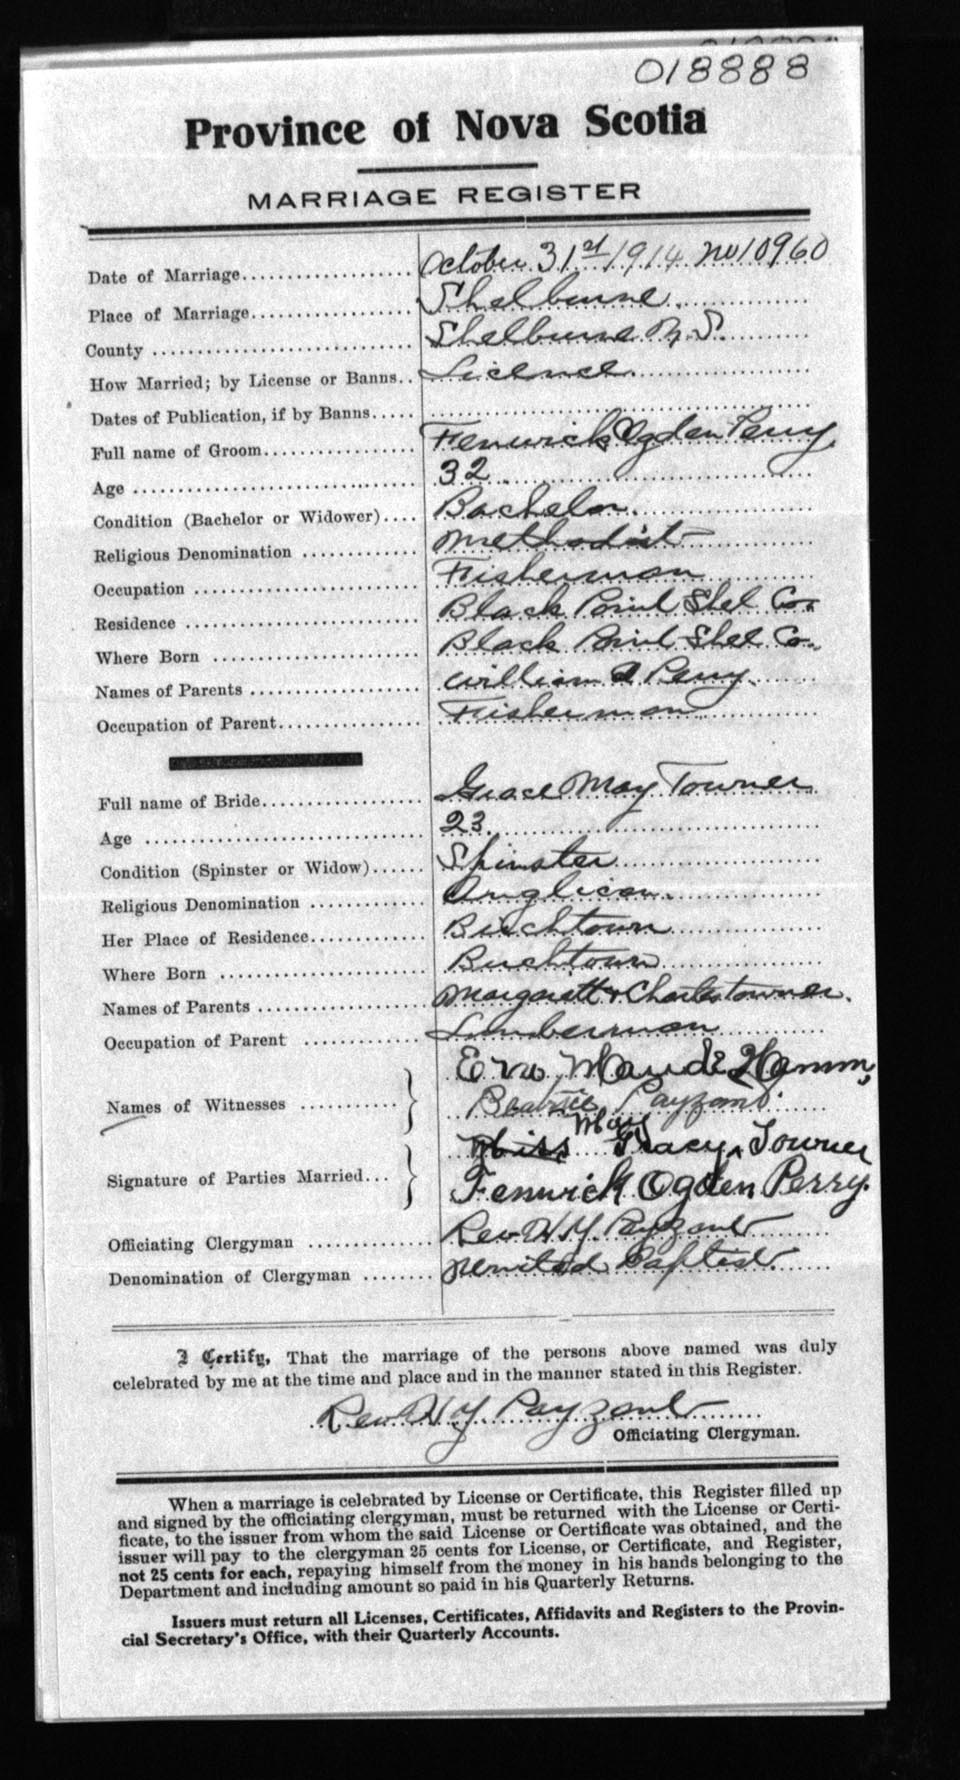 018888
Province of Nova Scotia
MARRIAGE REGISTER
Date of Marriage.................... October 31st 1914 No 10960
Place of Marriage................... Shelburne
County .............................. Shelburne N.S.
How Married; by License or Banns.. Licence
Dates of Publication, if by Banns.....
Full name of Groom.................. Fenwick Ogden Perry
Age ................................. 32
Condition (Bachelor or Widower).... Bachelor
Religious Denomination ............. Methodist
Occupation .......................... Fisherman
Residence ........................... Black Point Shel Co.
Where Born ......................... Black Point Shel Co.
Names of Parents ................... William A Perry
Occupation of Parent................ Fisherman
Full name of Bride................... Grace May Towner
Age ................................. 23
Condition (Spinster or Widow)...... Spinster
Religious Denomination ............. Anglican
Her Place of Residence............. Birchtown
Where Born ......................... Birchtown
Names of Parents ................... Margarett & Charles Towner.
Occupation of Parent .............. Lumberman
Maude Hamm,
Names of Witnesses ............... } Beatrice Payzant.
Miss Gracy May Towner
Signature of Parties Married... } Fenwick Ogden Perry.
Officiating Clergyman .............. Rev W. Y. Payzant
Denomination of Clergyman ........ United Baptist
I Certify, That the marriage of the persons above named was duly
celebrated by me at the time and place and in the manner stated in this Register.
Rev W Y. Payzant
Officiating Clergyman.
When a marriage is celebrated by License or Certificate, this Register filled up
and signed by the officiating clergyman, must be returned with the License or Certi-
ficate, to the issuer from whom the said License or Certificate was obtained, and the
issuer will pay to the clergyman 25 cents for License, or Certificate, and Register,
not 25 cents for each, repaying himself from the money in his hands belonging to the
Department and including amount so paid in his Quarterly Returns.
Issuers must return all Licenses, Certificates, Affidavits and Registers to the Provin-
cial Secretary's Office, with their Quarterly Accounts.